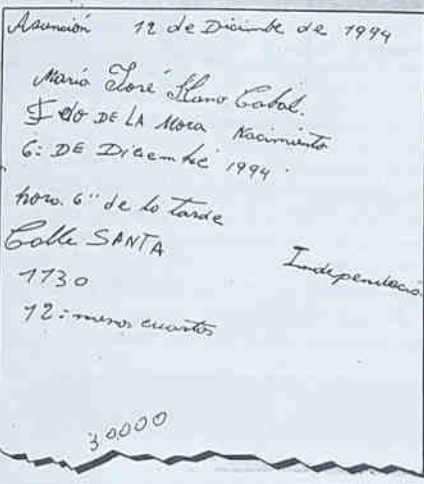 Asunción 12 de Diciembe de 1994
Maria José Llano Cabal.
Fdo DE LA Mora Nacimiento
6: DE Diciembre 1994.
hora. 6'' de la tarde
Calle SANTA
Independencia
1130
12: menos cuartos
30.000